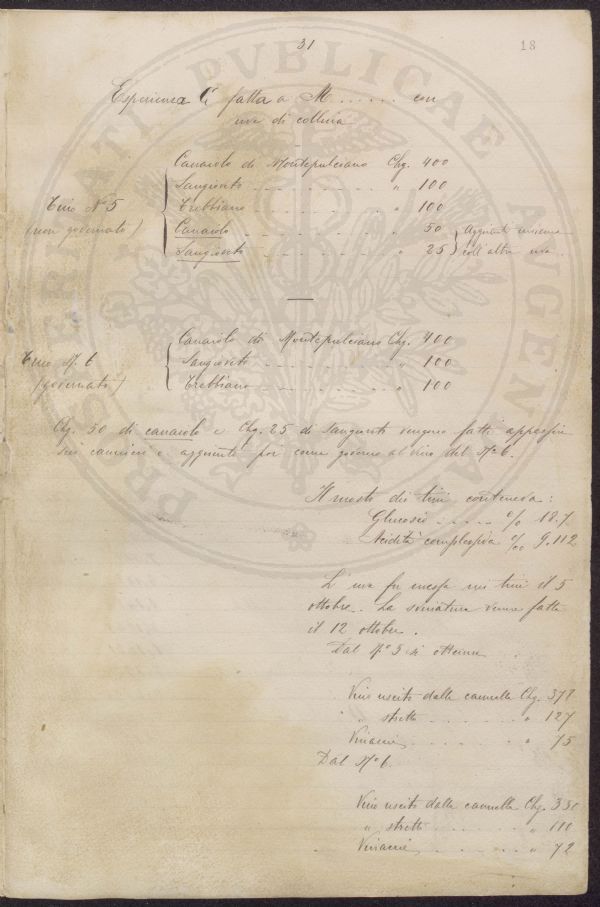 31
18
Esperienza C fatta a M ...... con
uva di collina
Canaiolo di Montepulciano Chg. 400
Sangioveto - - - - - - - " 100
Trebbiano - - - - - - - " 100
Tino N° 5
(non governato)
Canaiolo - - - - - - - " 50
Sangioveto - - - - - " 25
Aggiunti insieme
coll'altra uva.
Canaiolo di Montepulciano Chg. 400
Sangioveto - - - - - - - " 100
Trebbiano - - - - - - - " 100
Tino N. 6
(governato)
Chg. 50 di canaiolo e Chg. 25 di Sangioveto vengono fatti appassire
sui cannicci e aggiunti poi come governo al vino del N° 6.
Il mosto dei tini conteneva:
Glucosio ..... % 18.7
Acidità complessiva ‰ 9.112
L'uva fu messa nei tini il 5
ottobre. La svinatura venne fatta
il 12 ottobre.
Dal N° 5 si ottenne
Vino uscito dalla cannella Chg. 378
" stretto - - - - - - " 127
Vinaccie - - - - - - " 75
Dal N° 6.
Vino uscito dalla cannella Chg.
" stretto - - - - - - "
Vinaccie - - - - - - " 72
PROSPERITATI PVBLICAE AVGENDAE